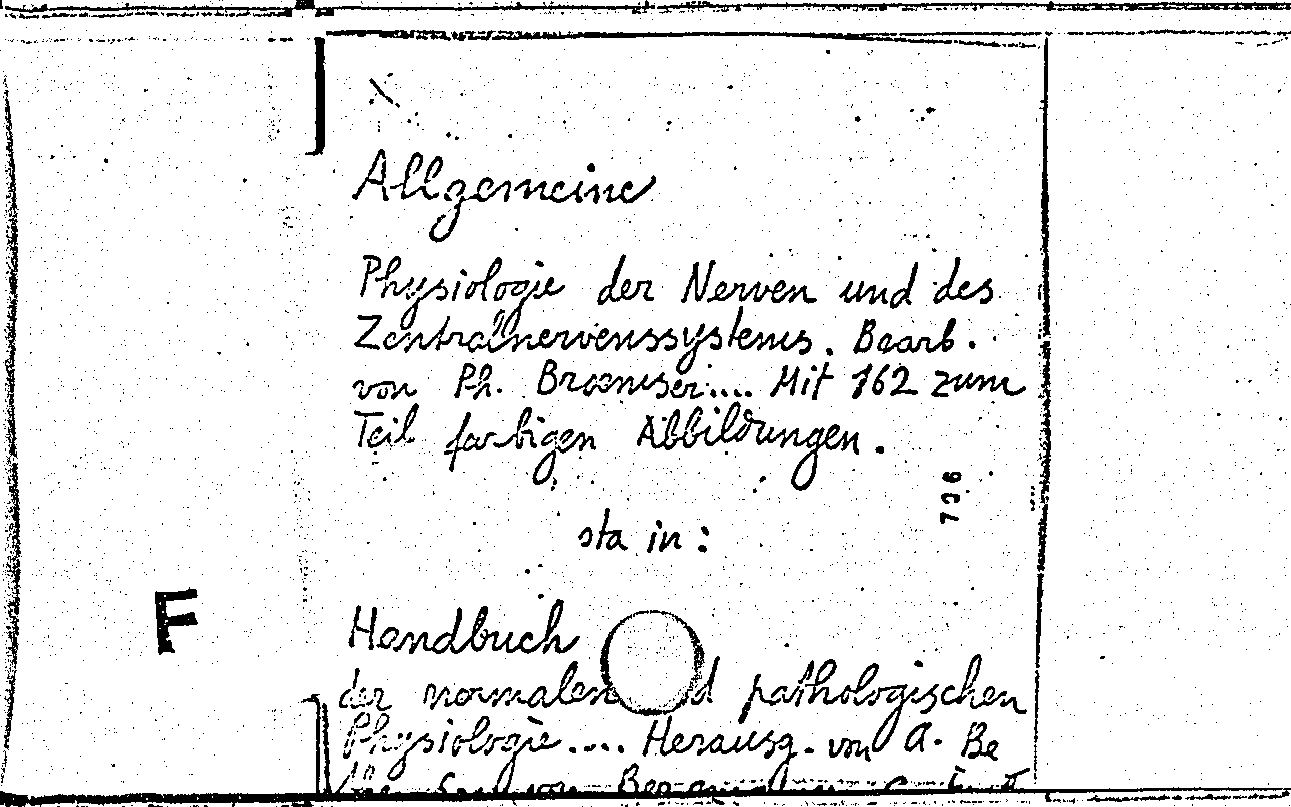 Allgemeine
Physiologie der Nerven und des
Zentralnervenssystems. Bearb.
von Ph. Broemser.... Mit 162 zum
Teil farbigen Abbildungen.
706
sta in:
F
Handbuch
der normalen d pathologischen
Physiologie.... Herausg. von A. Be
von